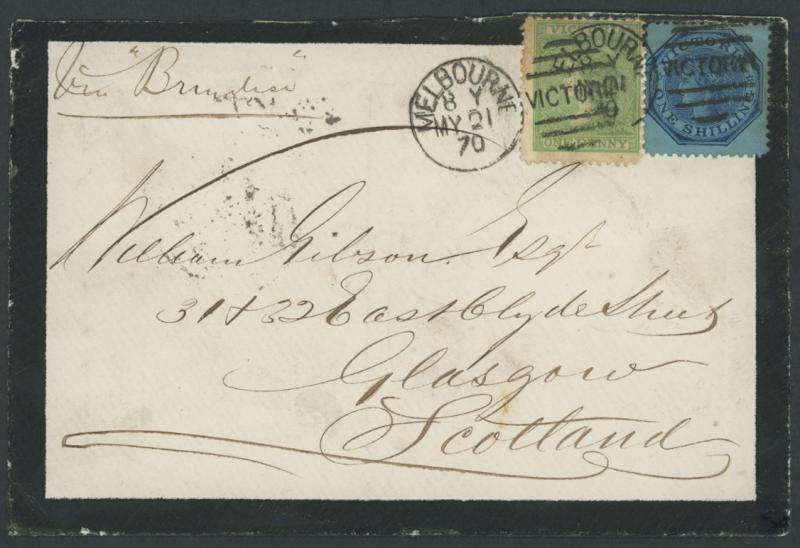 Via "Brindisi"
MELBOURNE
8 Y
MY 21
70
VICTORIA
ONE PENNY
MELBOURNE
VICTORIA
VICTORIA
VICTORIA
ONE SHILLING
William Gibson Esqr
31 & 32 East Clyde Street
Glasgow
Scotland